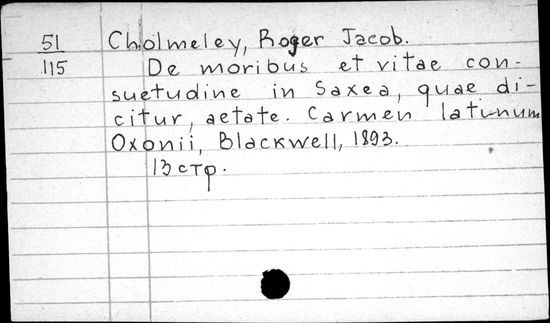 51
115
Cholmeley, Roger Jacob.
De moribus et vitae con-
suetudine in Saxea, quae di-
citur, aetate. Carmen latinum
Oxonii, Blackwell, 1893.
13 стр.